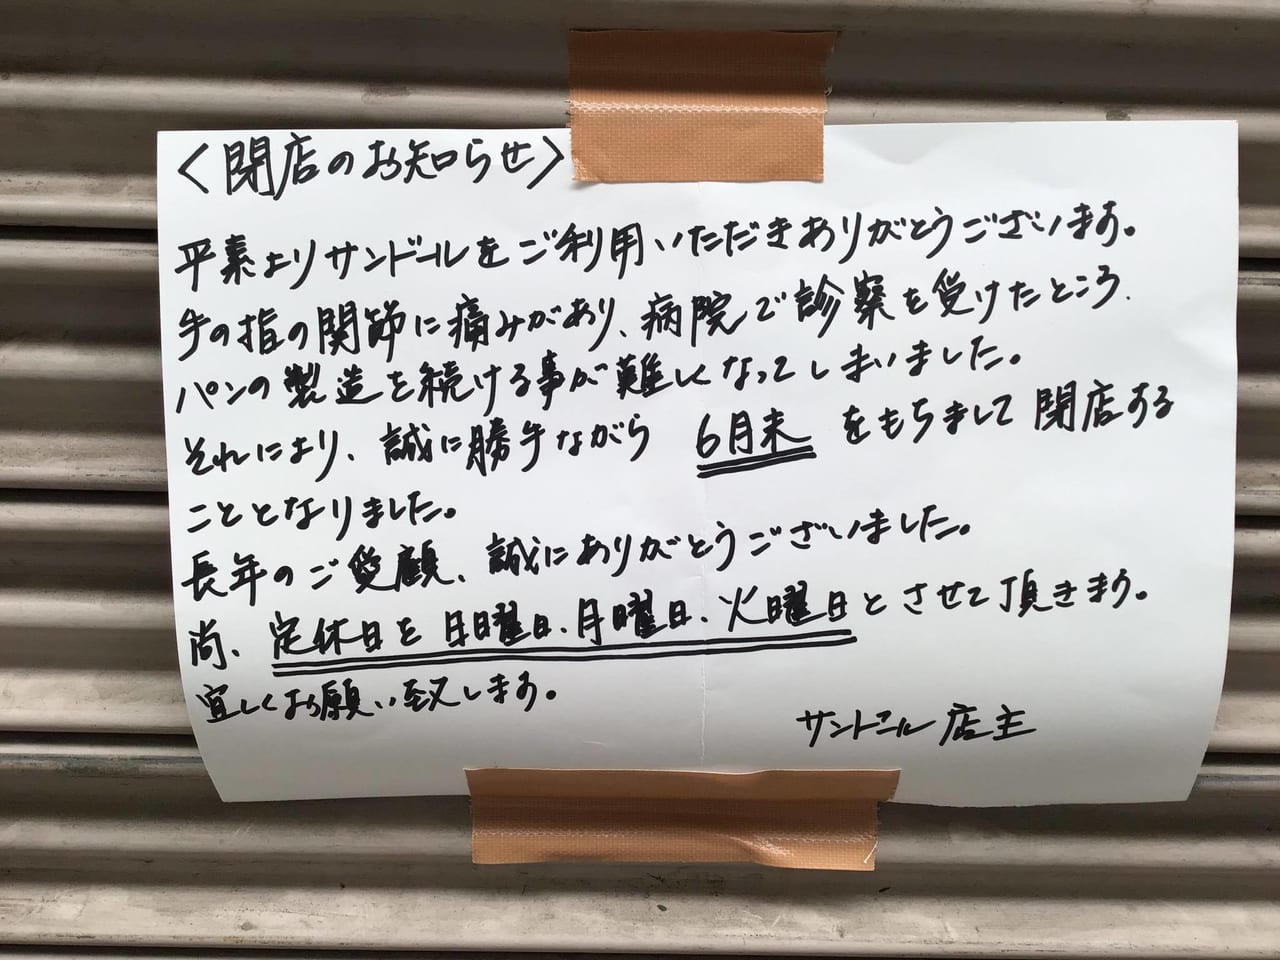 <閉店のお知らせ>
平素よりサンドールをご利用いただきありがとうございます。
手の指の関節に痛みがあり、病院で診察を受けたところ、
パンの製造を続ける事が難しくなってしまいました。
それにより、誠に勝手ながら 6月末 をもちまして閉店する
こととなりました。
長年のご愛顧、誠にありがとうございました。
尚、定休日を日曜日、月曜日、火曜日とさせて頂きます。
宜しくお願い致します。
サンドール店主